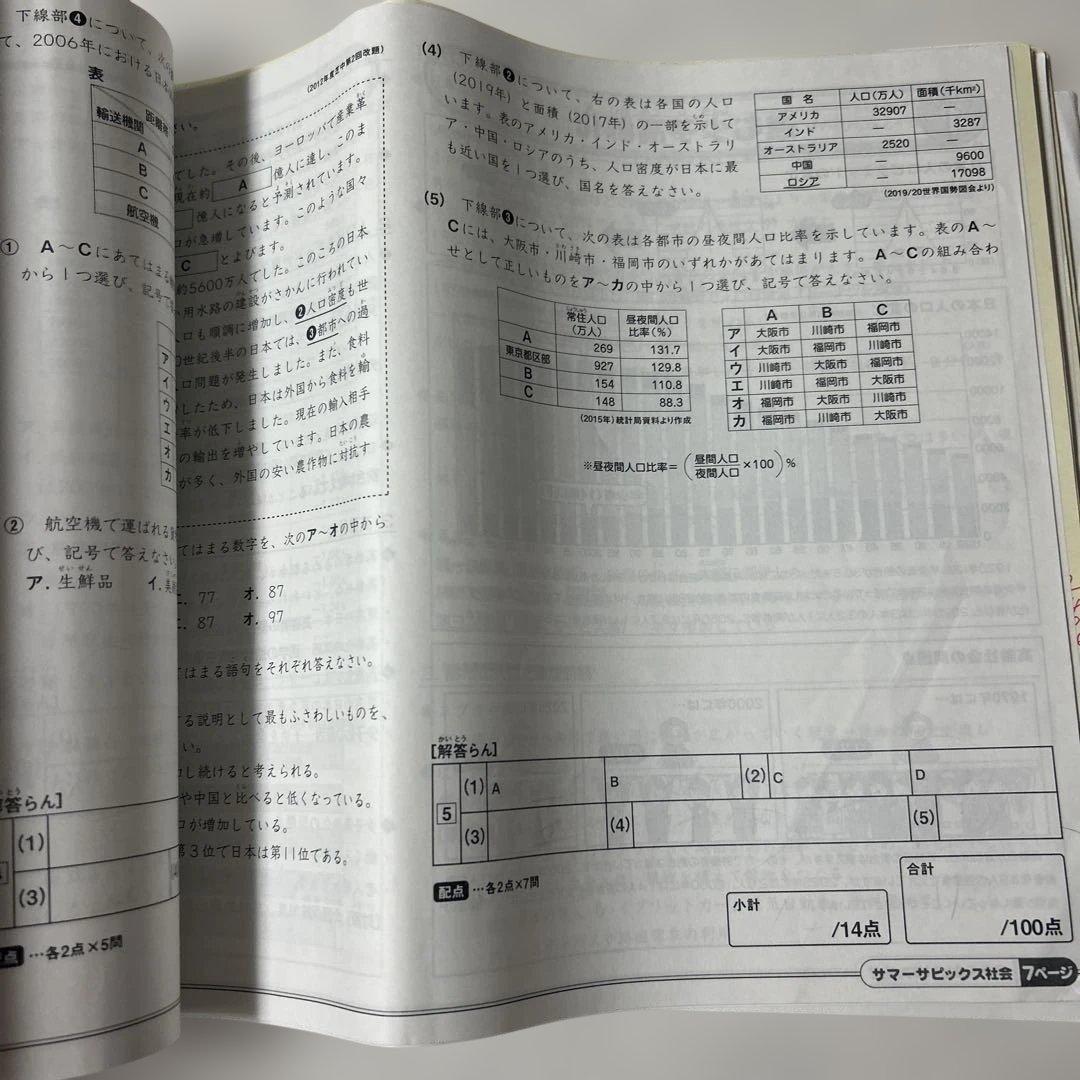 下線部❹について、次
て、2006年における日本
表
輸送機関
A
B
C
航空機
① A～Cにあてはまる
から1つ選び、記号で
ア
イ
ウ
エ
オ
カ
② 航空機で運ばれる貨
び、記号で答えなさい
ア．生鮮品 イ．美
答らん]
(1)
(3)
点 …各2点×5問
(2012年度芝中第2回改題)
さい。
でした。その後、ヨーロッパで産業革
現在約 A 億人に達し、このま
億人になると予測されています。
口が急増しています。このような国々
C とよびます。
約5600万人でした。このころの日本
用水路の建設がさかんに行われてい
口も順調に増加し、❷人口密度も世
0世紀後半の日本では、❸都市への過
口問題が発生しました。また、食料
したため、日本は外国から食料を輸
率が低下しました。現在の輸入相手
の輸出を増やしています。日本の農
が多く、外国の安い農作物に対抗す
てはまる数字を、次のア～オの中から
77 オ．87
87 オ．97
てはまる語句をそれぞれ答えなさい。
する説明として最もふさわしいものを、
い。
し続けると考えられる。
や中国と比べると低くなっている。
口が増加している。
第3位で日本は第11位である。
(4) 下線部❷について、右の表は各国の人口
(2019年)と面積(2017年)の一部を示して
います。表のアメリカ・インド・オーストラリ
ア・中国・ロシアのうち、人口密度が日本に最
も近い国を1つ選び、国名を答えなさい。
国名 人口(万人) 面積(千km²)
アメリカ 32907 —
インド — 3287
オーストラリア 2520 —
中国 — 9600
ロシア — 17098
(2019/20世界国勢図会より)
(5) 下線部❸について、次の表は各都市の昼夜間人口比率を示しています。表のA～
Cには、大阪市・川崎市・福岡市のいずれかがあてはまります。A～Cの組み合わ
せとして正しいものをア～カの中から1つ選び、記号で答えなさい。
常住人口(万人) 昼夜間人口比率(%)
A 269 131.7
東京都区部 927 129.8
B 154 110.8
C 148 88.3
(2015年)統計局資料より作成
A B C
ア 大阪市 川崎市 福岡市
イ 大阪市 福岡市 川崎市
ウ 川崎市 大阪市 福岡市
エ 川崎市 福岡市 大阪市
オ 福岡市 大阪市 川崎市
カ 福岡市 川崎市 大阪市
※昼夜間人口比率＝(昼間人口/夜間人口×100)%
[解答らん]
5 (1) A B (2) C D
(3) (4) (5)
配点 …各2点×7問
小計 /14点
合計 /100点
サマーサピックス社会 7ページ